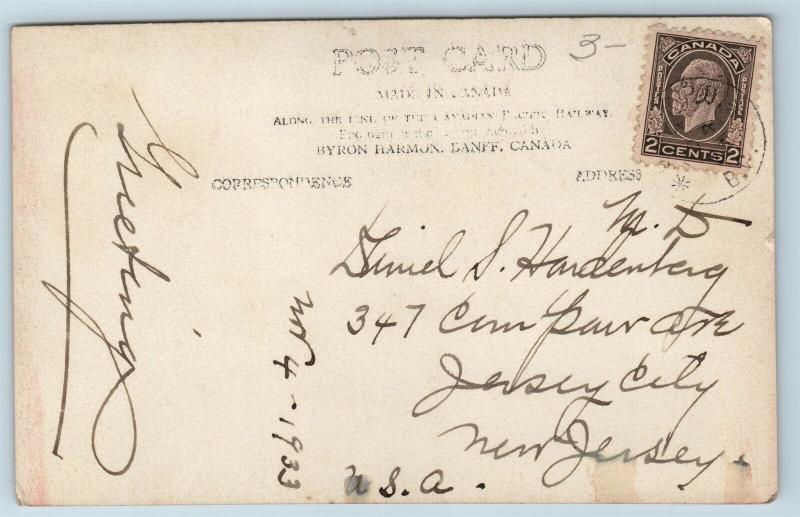 POST CARD
3-
MADE IN CANADA
ALONG THE LINE OF THE CANADIAN PACIFIC RAILWAY.
BYRON HARMON, BANFF, CANADA
CORRESPONDENCE
ADDRESS
CANADA
POSTES POSTAGE
2 CENTS 2
B.C.
Greetings
Nov 4-1933
M. D
Daniel S. Hardenberg
347 Communipaw Ave
Jersey City
New Jersey.
U.S.A.